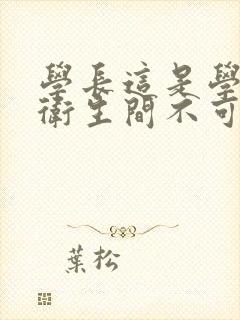 學長這是學
衛生間不可
葉松